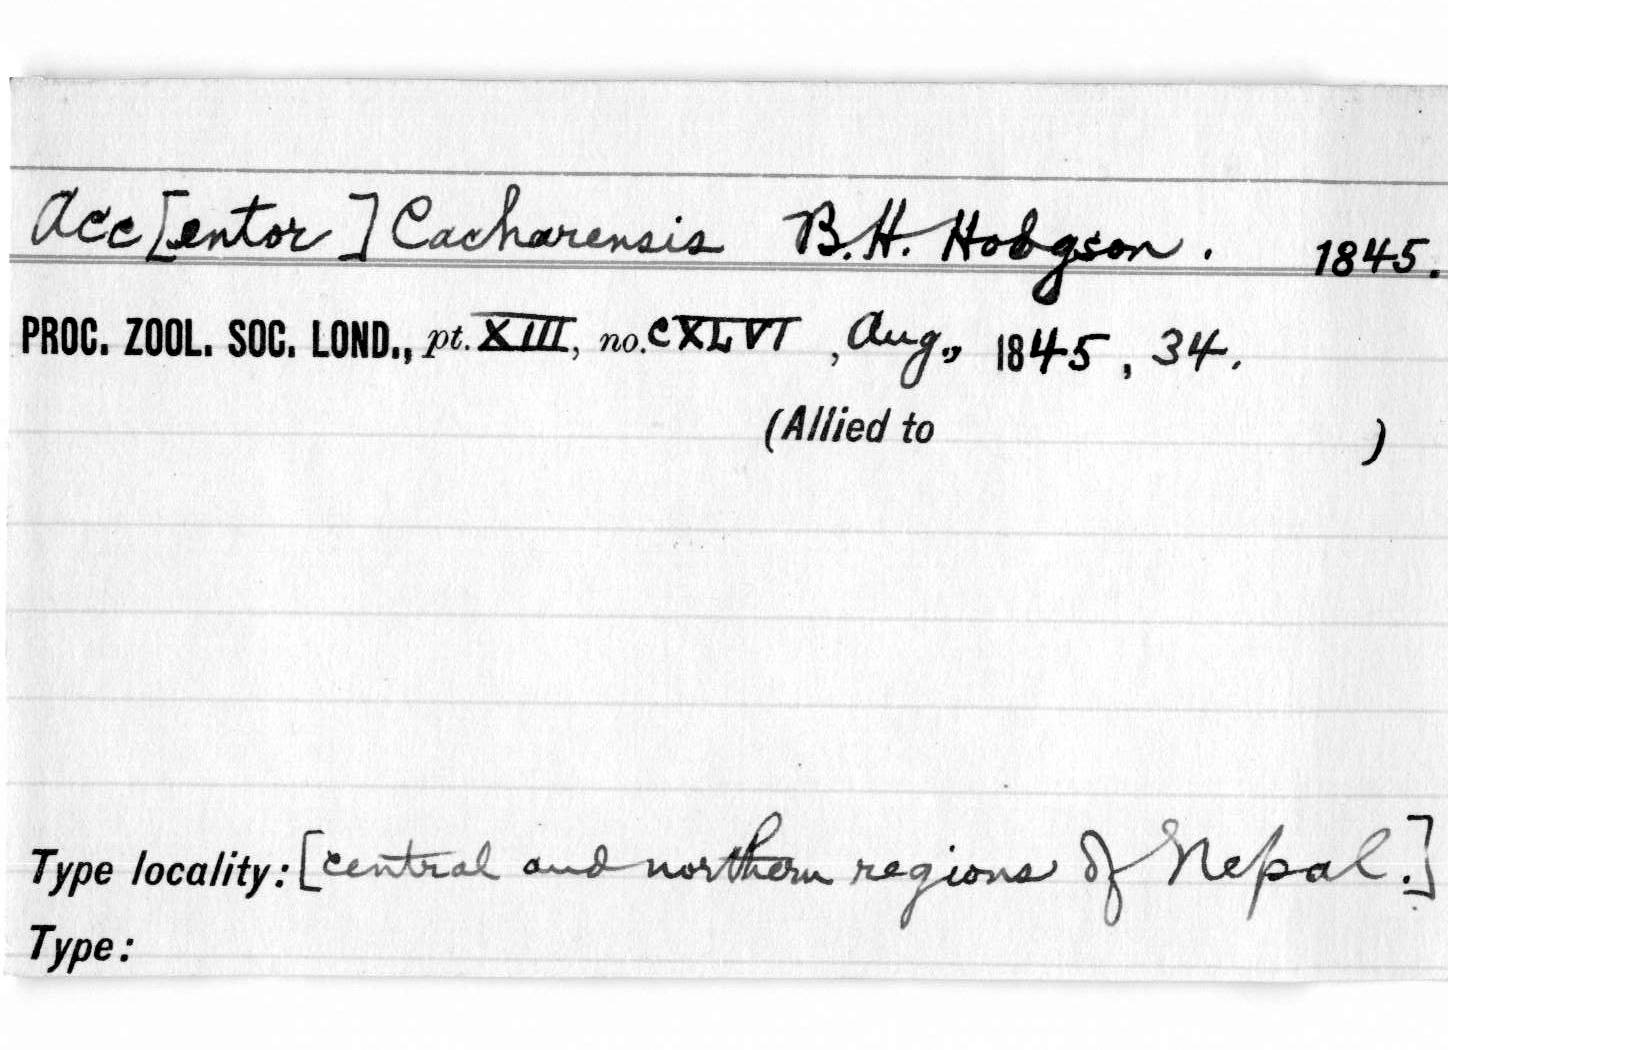 Acc[entor] Cacharensis B.H. Hodgson. 1845.
PROC. ZOOL. SOC. LOND., pt. XIII, no. CXLVI, Aug., 1845, 34.
(Allied to )
Type locality: [central and northern regions of Nepal.]
Type: